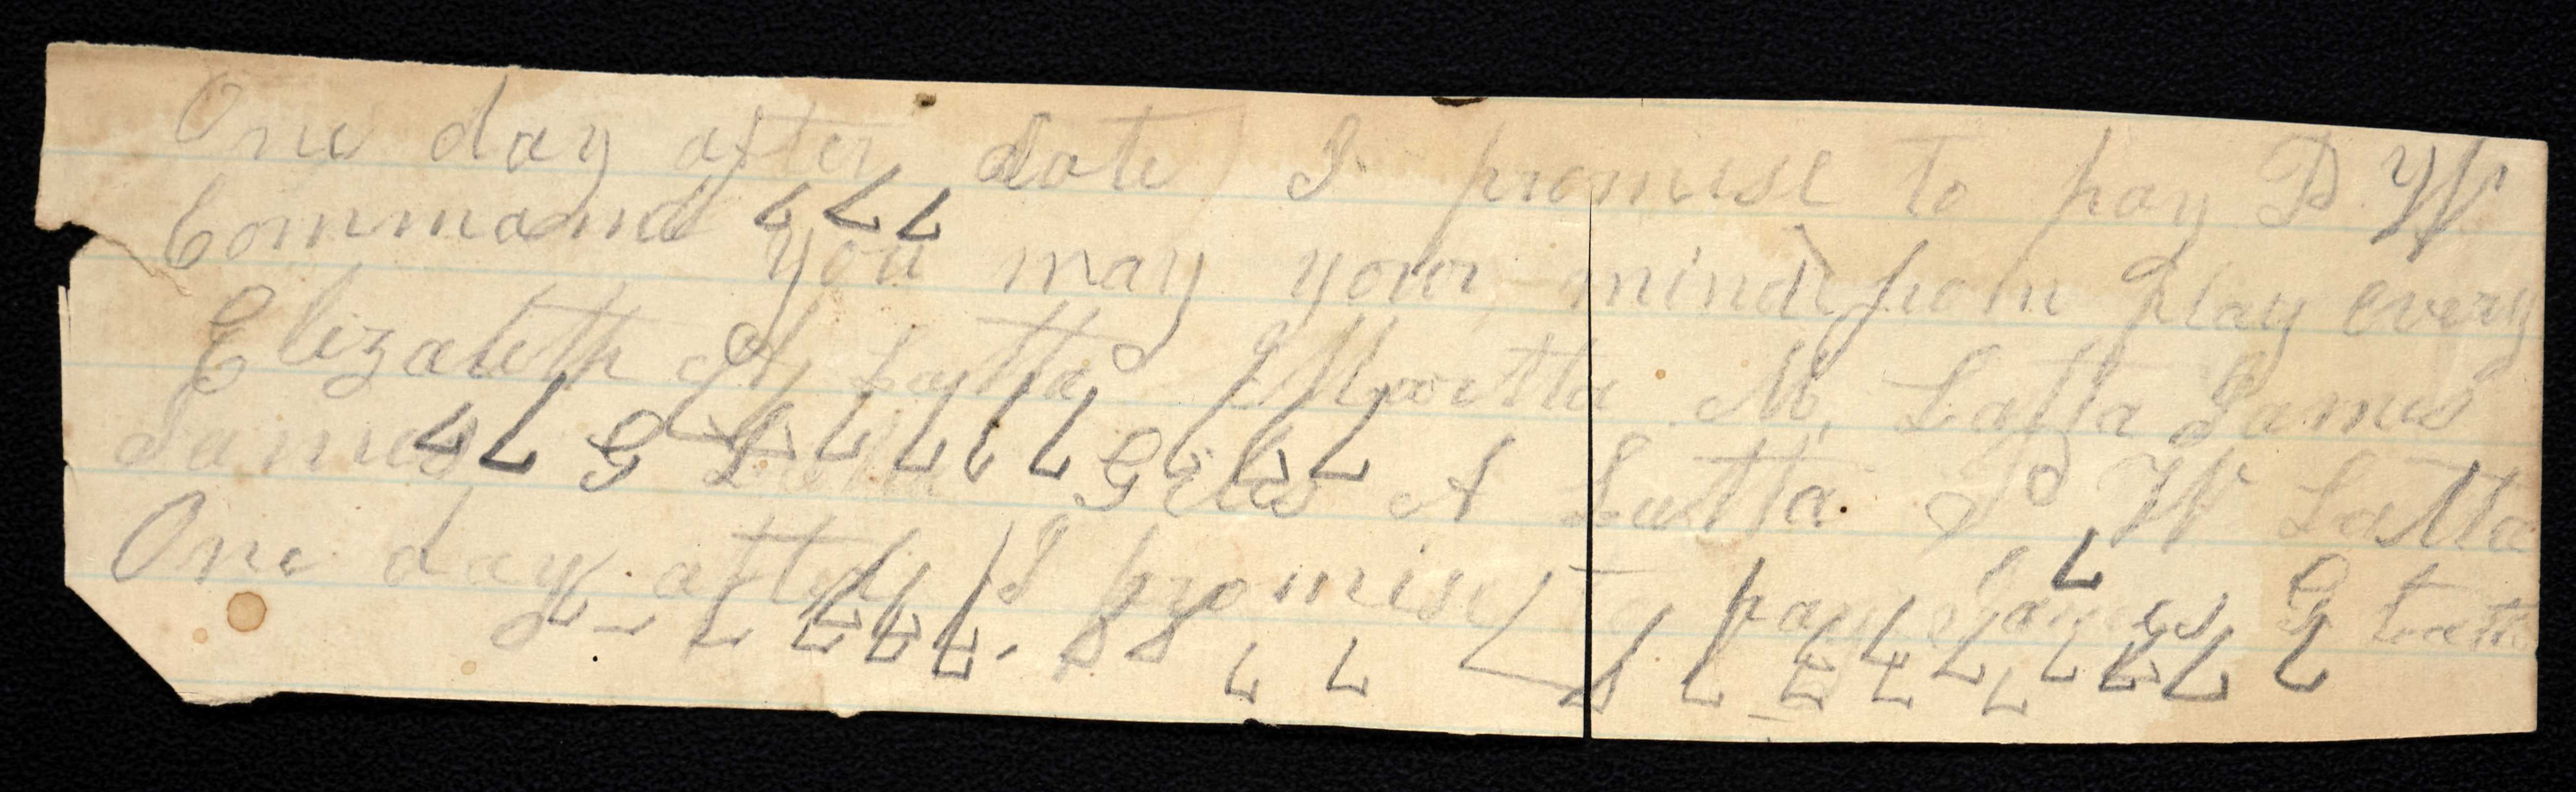 One day after date I promise to pay P. W
Command
you may your mind from play every
Elizabeth A, Latta Martta M, Latta James
James G Latta Giles A Latta P W Latta
One day after I promise to pay James G Latta